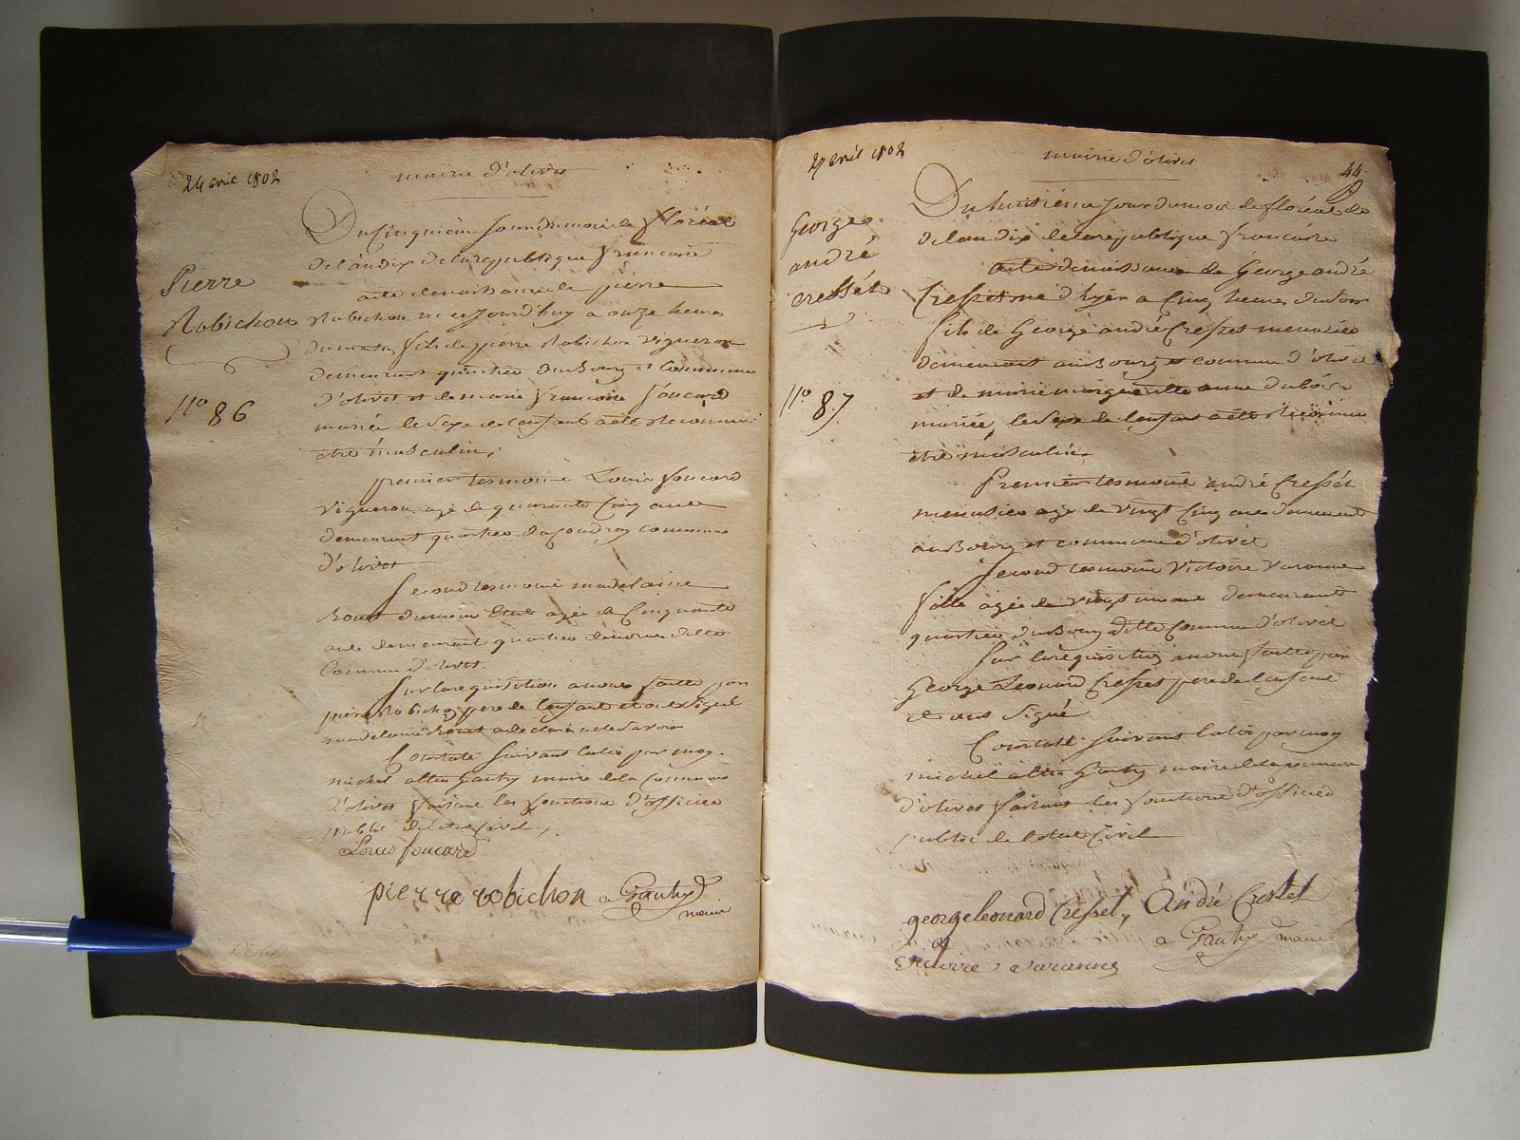 24 avril 1802
mairie d'olivet
Du Cinquieme Jour du mois de floréal
de l'an dix de la republique francaise
acte de naissance de pierre
Robichon né ce jourd'huy a onze heures
du matin, fils de pierre Robichon vigneron
demeurant quartier du Bourg et Commune
d'olivet et de marie francoise foucard
mariée le Sexe de l'enfant a été reconnu
etre masculin,
Pierre
Robichon
N° 86
premier tesmoin Louis foucard
vigneron agé de quarante Cinq ans
demeurant quartier du Coudray commune
d'olivet
Second tesmoin madelaine
agée de Cinquante
ans demeurant quartier
Commune d'olivet
Sur la requisition a nous faitte par
pierre Robichon pere de l'enfant et a le Signé
madelaine
Constaté Suivant la loi par moy
michel altin Gauthy maire de la Commune
d'olivet faisant les fonctions d'officier
public de l'etat Civil,
Louis foucard
pierre robichon a Gauthy
maire
29 avril 1802
mairie d'olivet
44
Du huitiéme Jour du mois de floréal de
de l'an dix de la republique francaise
acte de naissance de George andré
Cresset né d'hyer a Cinq heures du soir
fils de George andré Cresset menuisier
demeurant au Bourg et commune d'olivet
et de marie margueritte anne dubois
mariée, le Sexe de l'enfant a été reconnu
etre masculin.
George
andré
cresset
N° 87
Premier tesmoin andré Cresset
menuisier agé de vingt Cinq ans demeurant
au Bourg et commune d'olivet
Second tesmoin Victoire Varenne
fille agée de vingt un ans demeurant
quartier du Bourg ditte Commune d'olivet
Sur la requisition a nous faitte par
George Leonard Cresset pere de l'enfant
et ont Signé
Constaté Suivant la loi par moy
michel altin Gauthy maire de la commune
d'olivet faisant les fonctions d'officier
public de l'etat Civil
george leonard Cresset, André Cresset
a Gauthy maire
victoire varennes